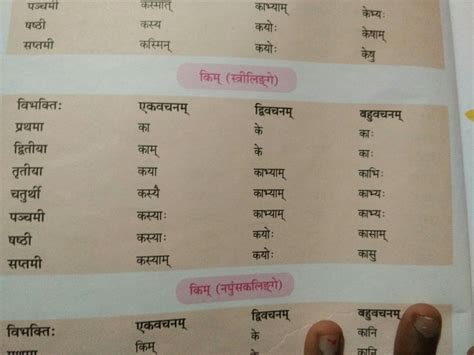 पञ्चमी कस्मात् काभ्याम् केभ्यः
षष्ठी कस्य कयोः केषाम्
सप्तमी कस्मिन् कयोः केषु
किम् (स्त्रीलिङ्गे)
विभक्तिः एकवचनम् द्विवचनम् बहुवचनम्
प्रथमा का के काः
द्वितीया काम् के काः
तृतीया कया काभ्याम् काभिः
चतुर्थी कस्यै काभ्याम् काभ्यः
पञ्चमी कस्याः काभ्याम् काभ्यः
षष्ठी कस्याः कयोः कासाम्
सप्तमी कस्याम् कयोः कासु
किम् (नपुंसकलिङ्गे)
विभक्तिः एकवचनम् द्विवचनम् बहुवचनम्
प्रथमा किम् के कानि
कानि